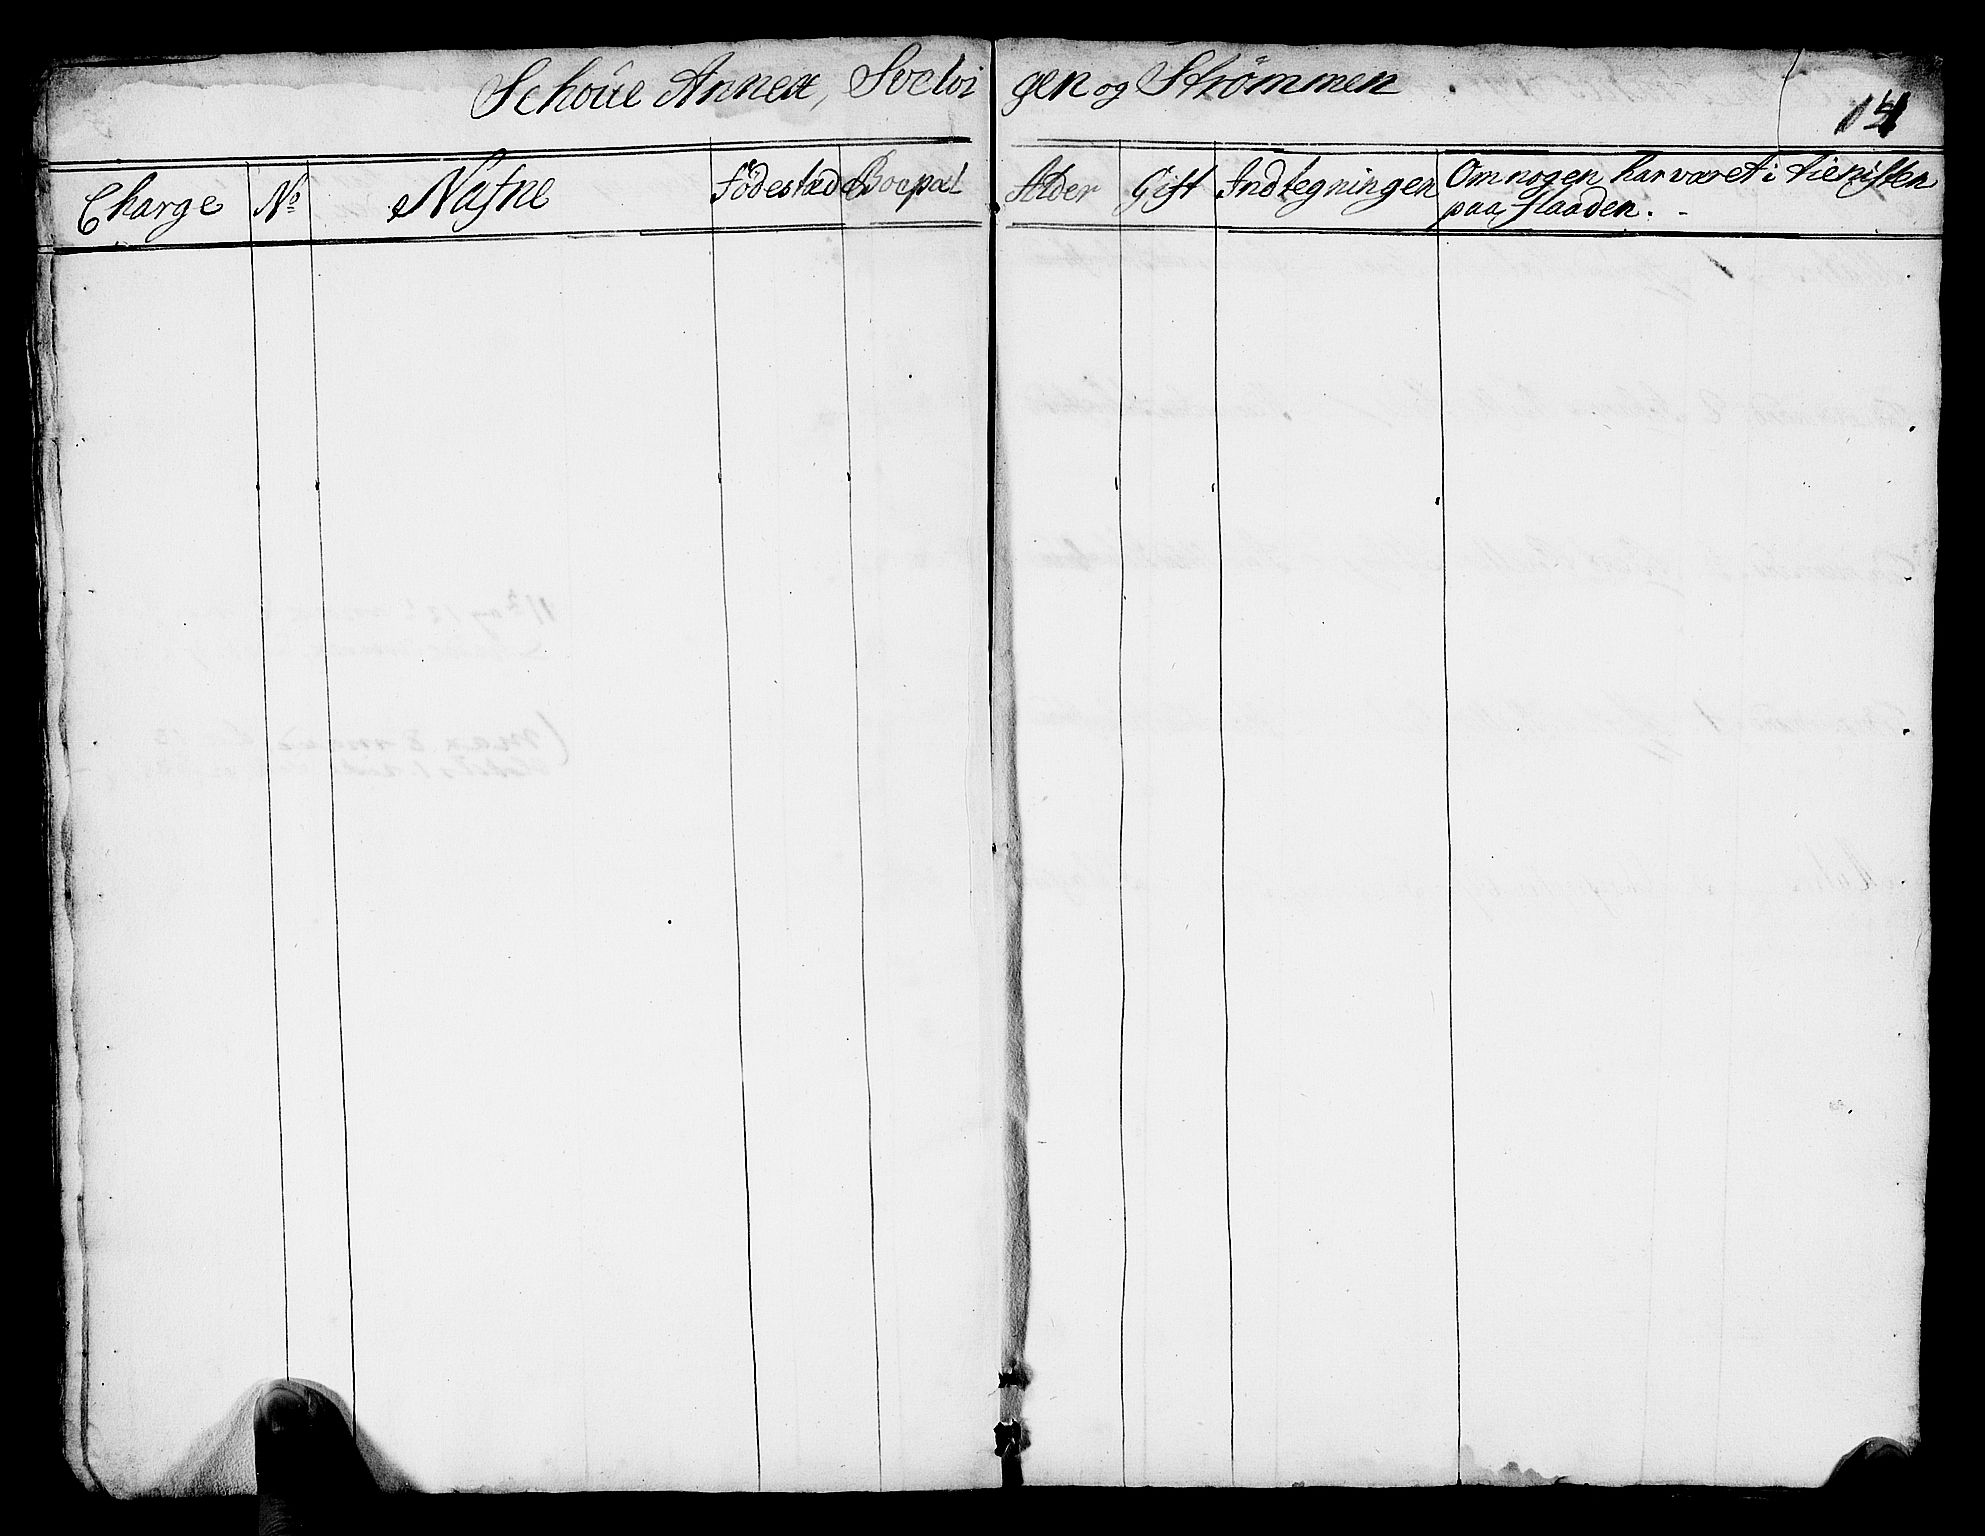 Schoüe Annex, Svelvigen og Strömmen
Charge No Nafne Födestæd Boepæl Alder Gift Indtegningen Om nogen har været i tienisten
paa flaaden.